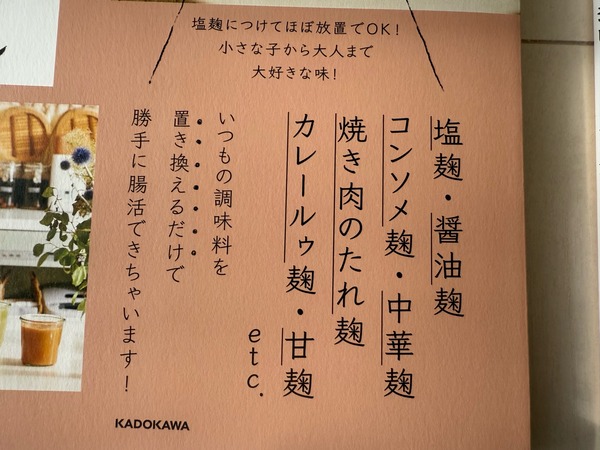 塩麹につけてほぼ放置でOK!
小さな子から大人まで
大好きな味!
塩麹・醤油麹
コンソメ麹・中華麹
焼き肉のたれ麹
カレールゥ麹・甘麹
etc.
いつもの調味料を
置き換えるだけで
勝手に腸活できちゃいます!
KADOKAWA